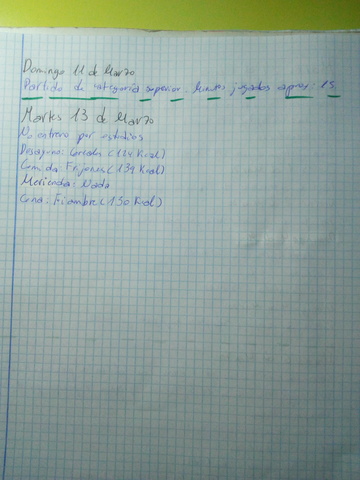 Domingo 11 de Marzo
Partido de categoria superior. Minutos jugados aprox: 15
Martes 13 de Marzo
No entreno por estudios
Desayuno: Cereales (114 Kcal)
Comida Frijones (139 Kcal)
Merienda: Nada
Cena. Fiambre (150 Kcal)